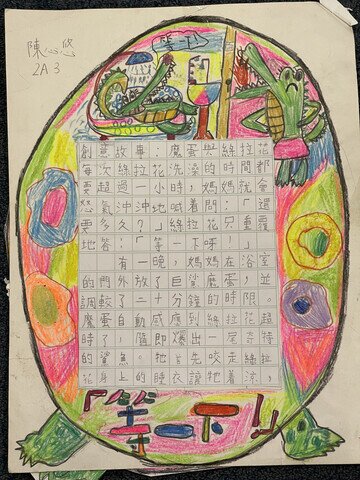 陳心悠
2A3
等一下
創意故事：魔蛋與絲拉花
每次絲拉花洗澡的時間都
要超過一小時，媽媽就會
怒氣沖沖地喊着問：「還
要多久？」絲拉花只重覆
地答：「等一下呀！」
有一晚，媽媽在浴室
的門外放了巨實魔蛋，並
調較了二十分鐘的時限。
魔蛋自動感應到絲拉花超
時了，隨即爆出一尾奇特
的鯊魚。牠首先咬走絲拉
花身上的睡衣讓牠着涼，
「等一下！」